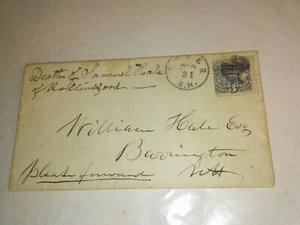 Death of Samuel Hale
of Rollinsford
DOVER
21
N.H.
William Hale Esq
Barrington
please forward NH